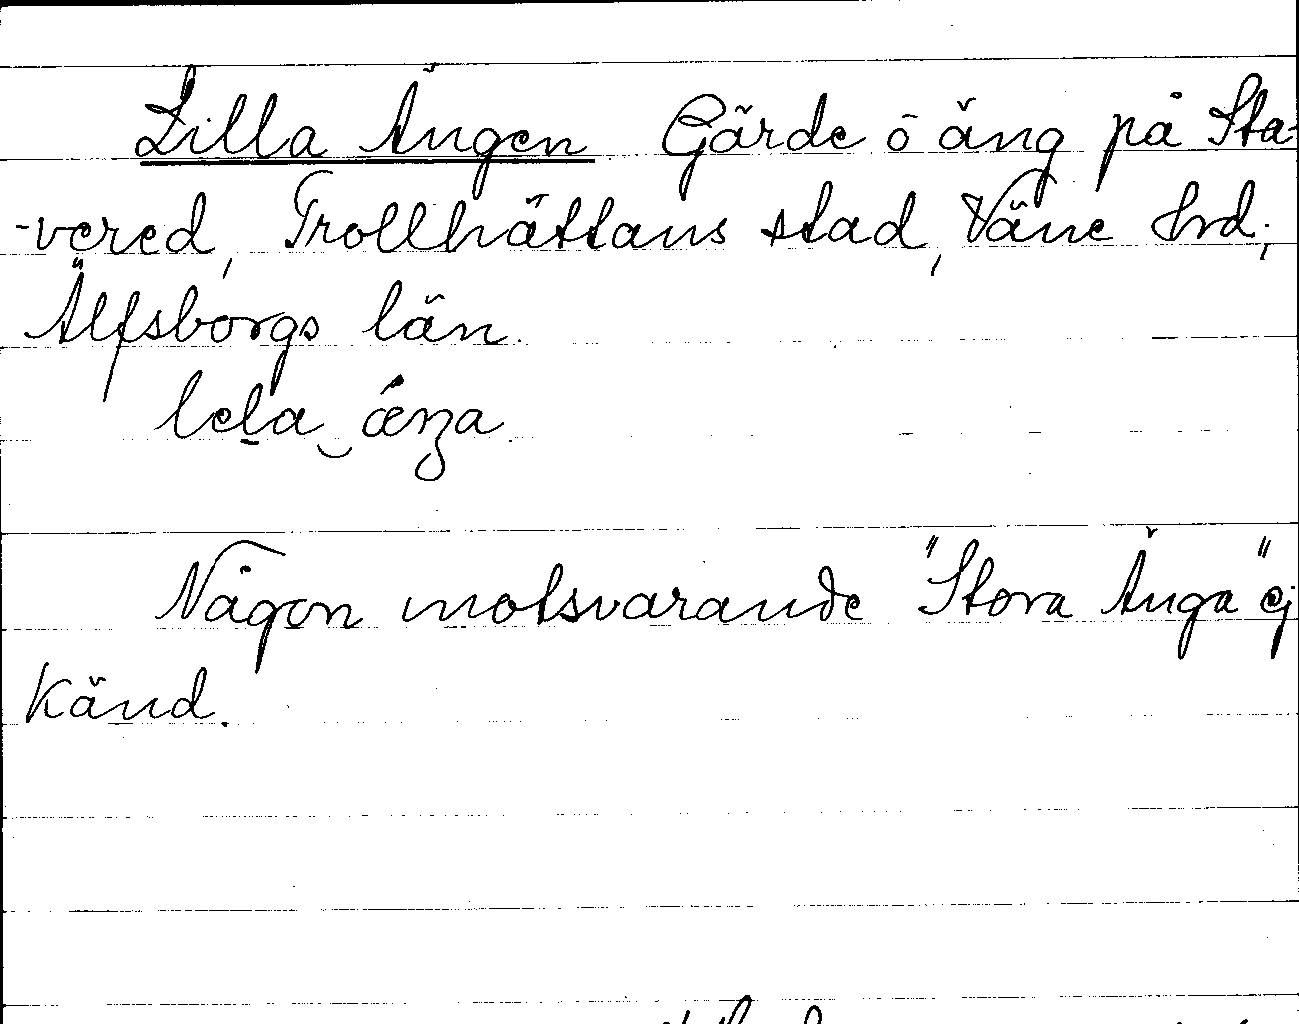 Lilla Ängen Gärde ö äng på Sta-
-vered, Trollhättans stad, Väne hrd,
Älfsborgs län.
lela änga
Någon motsvarande "Stora Änga" ej
känd.